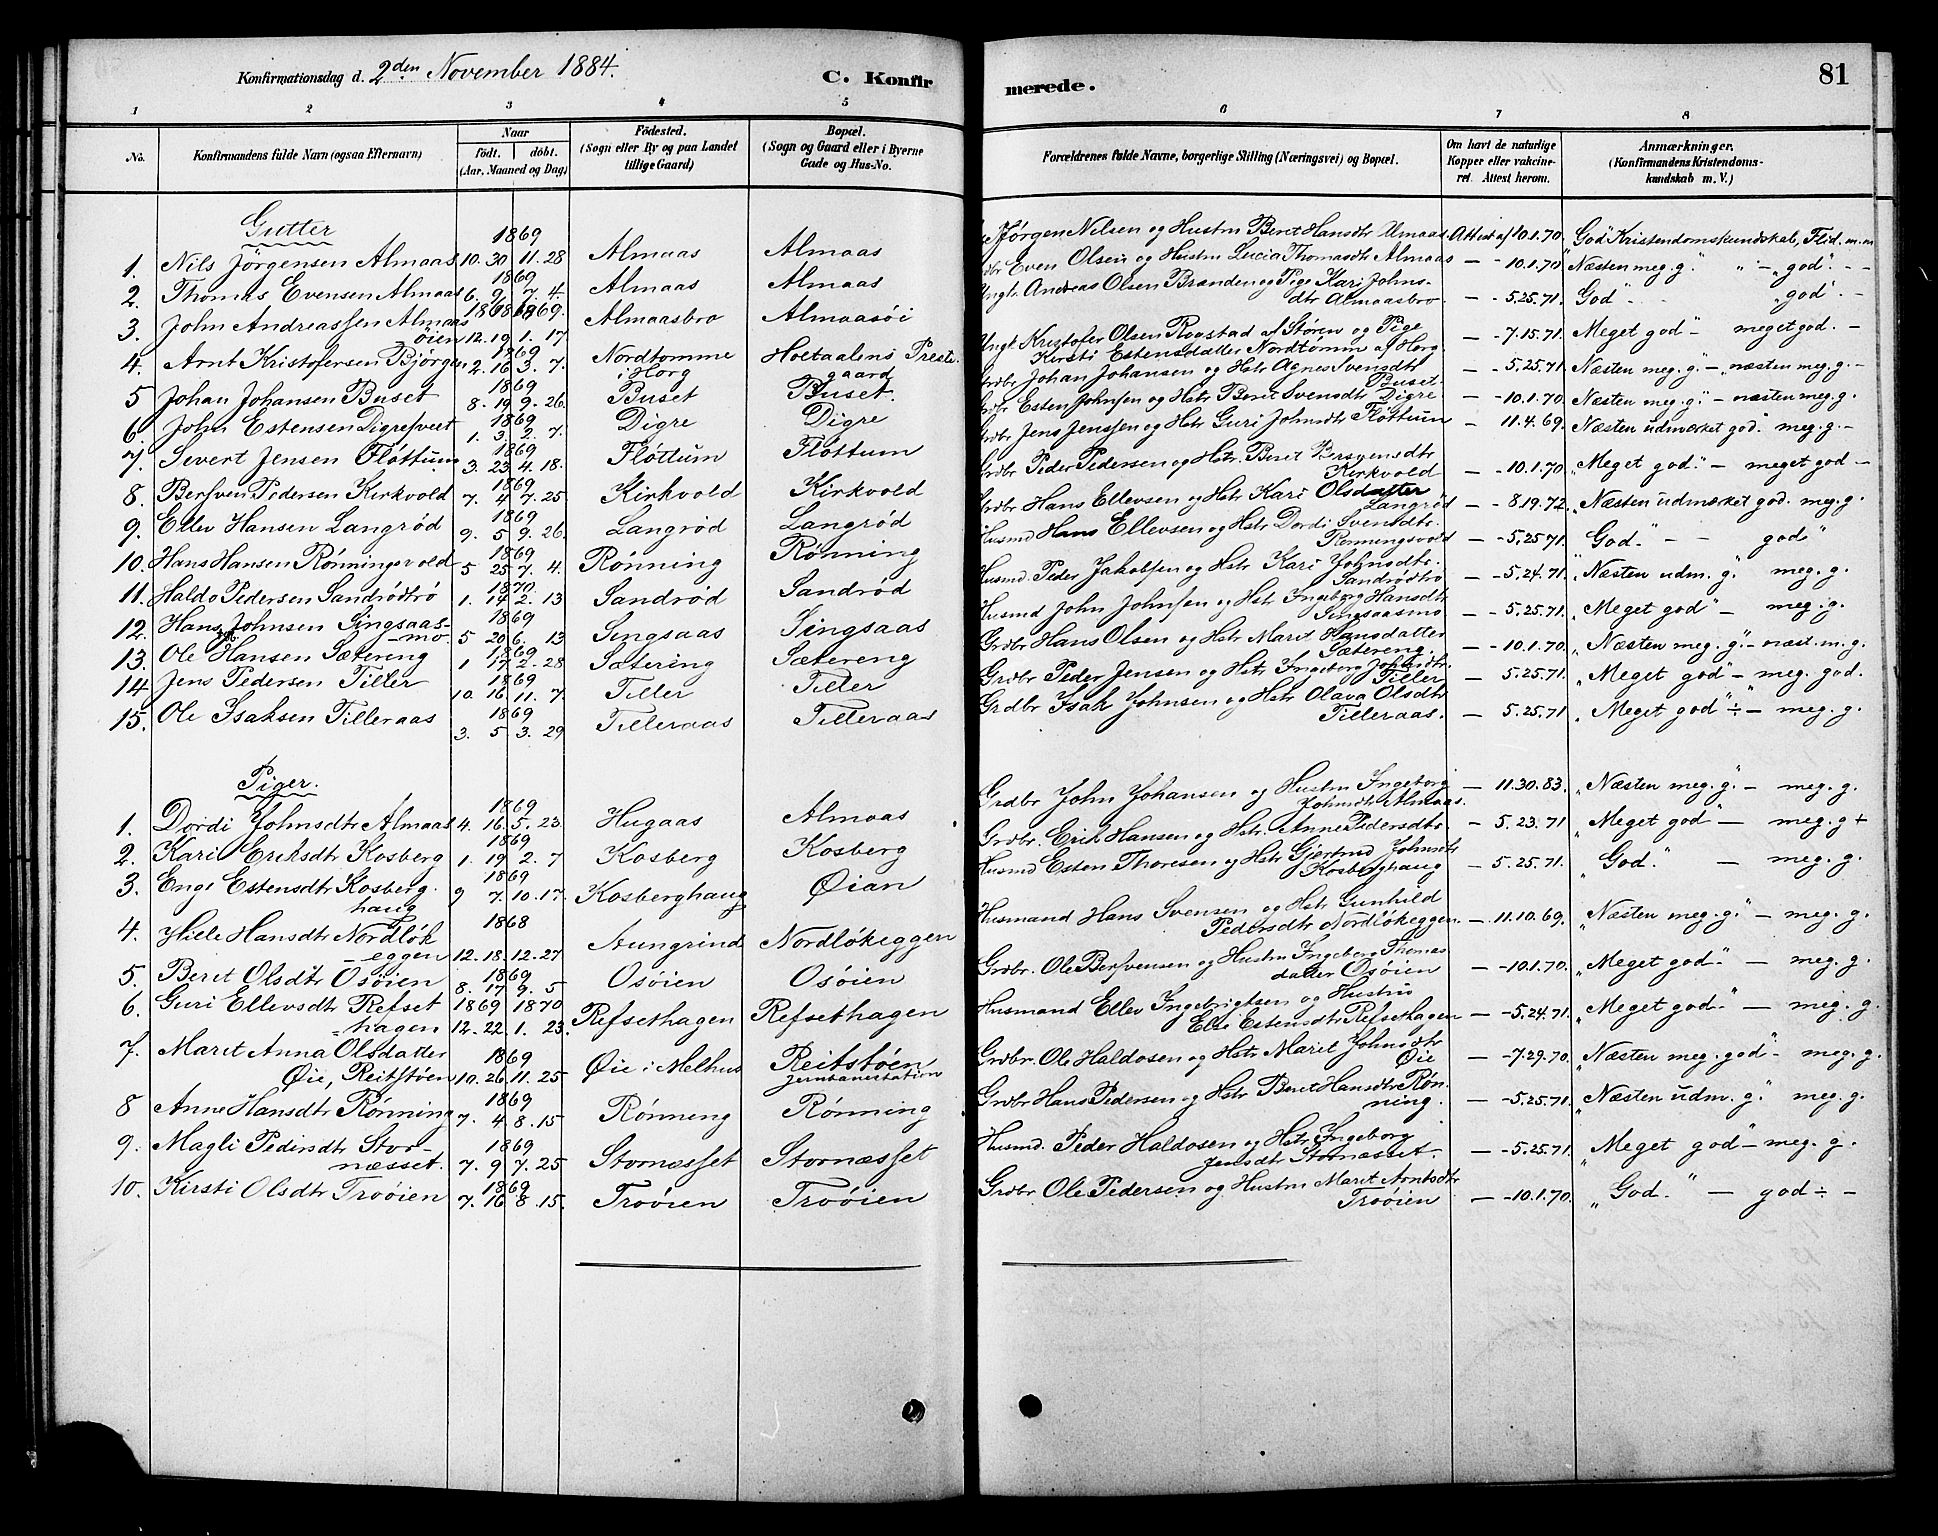 Konfirmationsdag d. 2den November 1884.
C. Konfir
merede.
81
1 2 3 4 5 6 7 8
No.
Konfirmandens fulde Navn (ogsaa Efternavn)
Naar
födt. döbt.
(Aar, Maaned og Dag)
Födested.
(Sogn eller By og paa Landet
tillige Gaard)
Bopæl.
(Sogn og Gaard eller i Byerne
Gade og Hus-No.
Forældrenes fulde Navne, borgerlige Stilling (Næringsvei) og Bopæl.
Om havt de naturlige
Kopper eller vakcine-
ret. Attest herom.
Anmærkninger.
(Konfirmandens Kristendoms-
kundskab m. V.)
Gutter
1. Nils Jörgensen Almaas 1869 10. 30 11. 28 Almaas Almaas Jörgen Nilsen og Hustru Beret Hansdtr Almaas Attest af 10.1.70. "God" Kristendomskundskab, Flid m.m
2. Thomas Evensen Almaas 1869 6. 9. 7. 4. Almaas Almaas Even Olsen og Hustru Lucia Thomasdtr Almaas — - 10.1.70 "Næsten meg. g." „ — „god". - -
3. John Andreassen Almaas
öien 1868 1869. 12. 19 1. 17 Almaasbro Almaasöi Ungk. Andreas Olsen Brandeu og Pige Kari Johns-
dtr Almaasbro — - 5.25.71. "God" „god". -
4. Arnt Kristofersen Björgen 1869 2. 16 3. 7. Nordtomme
i Horg Holtaalens Preste
gaard Ungk Kristofer Olsen Rogstad af Stören og Pige
Kirsti Estensdatter Nordtömm af Horg — - 7.15.71. "Meget god" — meget god. -
5 Johan Johansen Buset 1869 8. 19 9. 26. Buset Buset. Grdbr Johan Johansen og Hstr Agnes Svensdtr
Buset. — - 5.25.71 "Næsten meg. g." — næsten meg. g. -
6. John Estensen Digresveet 1869 1. 3. 2. 7. Digre Digre Grdbr Esten Johnsen og Hstr Beret Svensdtr Digre — - 10.1.70. "Næsten meg. g." — næsten meg. g.
7. Severt Jensen Flöttum 1869 3. 23 4. 18. Flöttum Flöttum Grdbr Jens Jenssen og Hstr Guri Johnsdtr Flöttum — - 11.4.69. "Næsten udmærket god. meg. g. -
8. Bersven Pedersen Kirkvold 1869 7. 4 7. 25 Kirkvold Kirkvold Grdbr Peder Pedersen og Hstr. Beret Bersvensdtr
Kirkvold — - 10.1.70. "Meget god." — meget god -
9. Ellev Hansen Langröd 1869 9. 5 9. 26. Langröd Langröd Grdbr Hans Ellevsen og Hstr Kari Olsdatter
Langröd — - 8.19.72. "Næsten udmærket god. meg. g.
10. Hans Hansen Rönningsvold 1869 5 25 7. 4. Rönning Rönning Husmd Hans Ellevsen og Hstr Dordi Svensdtr.
Rönningsvold — - 5.25.71. "God." — - god"
11. Haldo Pedersen Sandrödtrö 1870. 1. 14 2. 13 Sandröd Sandröd Husmd. Peder Jakobsen og Hstr Kari Johnsdtr.
Sandrödtrö — - 5.24.71. "Næsten udm. g." meg. g.
12. Hans Johnsen Singsaas-
mo. 1869 5 20 6. 13 Singsaas Singsaas Husmd John Johnsen og Hstr Ingeborg Hansdtr
Singsaasmo — - 5.25.71. "Meget god" — meg. g.
13. Ole Hansen Sætereng 1869 1 17 2. 28 Sætering Sætereng Grdbr Hans Olsen og Hstr Marit Hansdatter
Sætereng. — - 10.1.70. "Næsten meg. g." - næst. m. g.
14. Jens Pedersen Tiller 1869 10. 16 11. 7. Tiller Tiller Grdbr Peder Jensen og Hstr Ingeborg Johnsdtr.
Tiller — 5.25.71. "Meget god" — meg. god.
15. Ole Isaksen Tilleraas 1869 3. 5 3. 29 Tilleraas Tilleraas Grdbr Isak Johnsen og Hstr Olava Olsdtr
Tilleraas. — 5.25.71 "Meget god" ÷ — meg. g.
Piger.
1. Dordi Johnsdtr Almaas 1869 4. 16. 5. 23. Hugaas Almaas Grdbr John Johansen og Hustru Ingeborg
Johnsdtr Almaas. — - 11.30.83. "Næsten meg. g." — meg. g.
2. Kari Eriksdtr Kosberg 1869 1. 19 2. 7 Kosberg Kosberg Grdbr. Erik Hansen og Hstr. Anne Pedersdtr. — 5.23.71 "Meget god — meg. g +
3. Enge Estensdtr Kosberg
haug 1869 9 7. 10. 17. Kosberghaug Øian Husmd Esten Thoresen og Hstr Gjertrud Johnsdtr
Kosberghaug — 5.25.71. "God." — meg. g.
4. Hansdtr Nordlök
eggen 1868 12. 18. 12. 27 Stungrind Nordlökeggen Husmand Hans Svensen og Hstr Gunhild
Pedersdtr Nordlökeggen. — 11.10.69. "Næsten meg. g." — meg. g.
5. Beret Olsdtr Osöien 1869 8. 17 9. 5 Osöien Osöien Grdbr. Ole Bersvensen og Hustru Ingeborg Thomas
datter Osöien — - 10.1.70. "Meget god." — meg. g.
6. Guri Ellevsdtr Refset
hagen 1869 1870 12. 22. 1. 23. Refsethagen Refsethagen Husmand Ellev Ingebrigtsen og Hustru
Else Estensdtr Refsethagen — - 5.24.71. "Meget god." — meg. g.
7. Marit Anna Olsdatter
Øie, Reitstöen 1869 10. 26 11. 25 Øie i Melhus Reitstöen
Jernbanestation Grdbr. Ole Haldosen og Hstr Marit Johnsdtr
Øie — - 7.29.70. "Næsten meg. god" - meg. g.
8 Anne Hansdtr Rönning 1869 7. 4. 8. 15 Rönneng Rönning Grdbr Hans Pedersen og Hstr Beret Hansdtr Rön-
ning. — - 5.25.71. "Næsten udm. g." meg. g.
9. Magli Pedersdtr Stor-
næsset. 1869 7. 9 7. 25 Stornæsset Stornæsset Husmd. Peder Haldosen og Hstr Ingeborg
Jensdtr Stornæsset. — - 5.25.71. "Meget god" — meg. g.
10. Kirsti Olsdtr Troöien 1869 7. 16 8. 15. Troöien Troöien Grdbr Ole Pedersen og Hustru Marit Arntsdtr
Troöien — - 10.1.70. "God." — god ÷ -